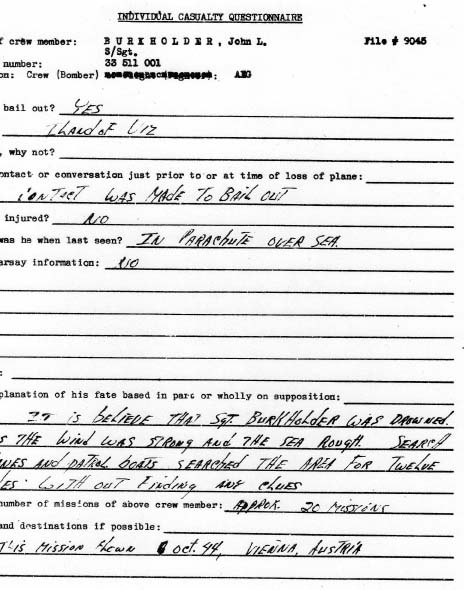 INDIVIDUAL CASUALTY QUESTIONNAIRE
f crew member: BURKHOLDER, John L. File # 9045
S/Sgt.
number: 33 511 001
on: Crew (Bomber) : AEG
bail out? YES
OF
, why not?
ontact or conversation just prior to or at time of loss of plane:
CONTACT WAS MADE TO BAIL OUT
injured? NO
was he when last seen? IN PARACHUTE OVER SEA.
arsay information: NO
:
planation of his fate based in part or wholly on supposition:
IT is bELIEVE THAT SgT. BURKHOLDER WAS DROWNED.
S THE WIND WAS STRONG AND THE SEA ROUGH. SEARCH
NES AND PATROL boATS SEARCHED THE AREA FOR TWELVE
WITH OUT FINDING ANY CLUES
number of missions of above crew member: APPROX. 20 MISSIONS
and destinations if possible:
THIS MISSION FLOWN 6 OCT. 44, VIENNA, AUSTRIA